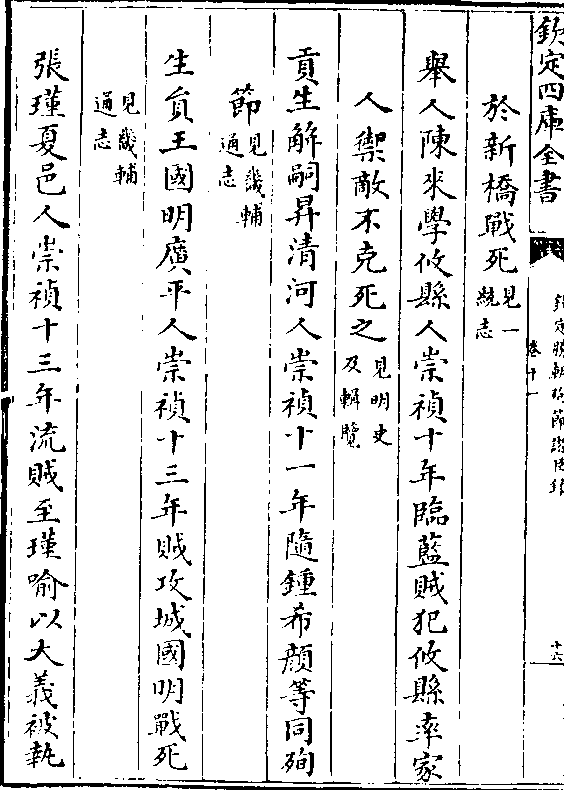 欽定四庫全書
欽定勝朝殉節諸臣錄
卷十一
十六
於新橋戰死見一統志
舉人陳來學攸縣人崇禎十年臨藍賊犯攸縣率家
人禦敵不克死之見明史及輯覽
貢生解嗣昇清河人崇禎十一年隨鍾希顔等同殉
節見畿輔通志
生貟王國明廣平人崇禎十三年賊攻城國明戰死
見畿輔通志
張瑾夏邑人崇禎十三年流賊至瑾喻以大義被執